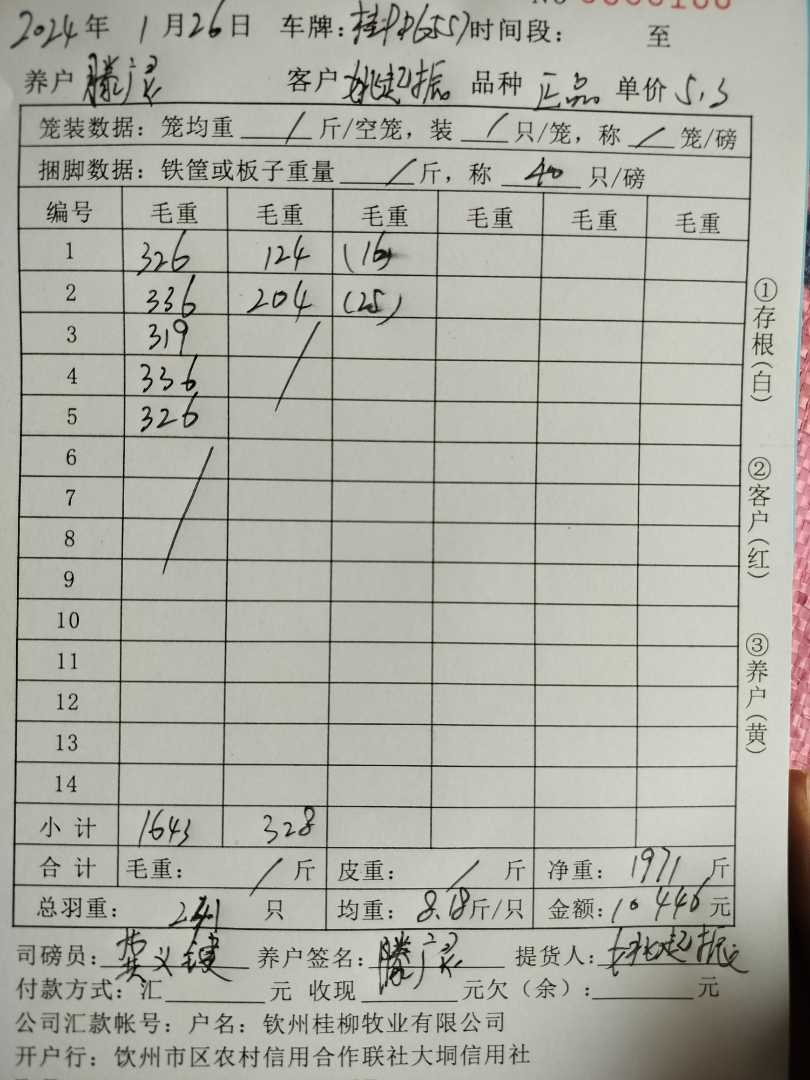 2024年 1月26日 车牌: 时间段: 至
养户 滕广灵 客户 姚起振 品种 正品 单价 5.3
笼装数据: 笼均重 / 斤/空笼, 装 / 只/笼, 称 / 笼/磅
捆脚数据: 铁筐或板子重量 / 斤, 称 40 只/磅
编号 毛重 毛重 毛重 毛重 毛重 毛重
1 326 124 (16)
2 336 204 (25)
3 319 /
4 336
5 326
6 /
7
8
9
10
11
12
13
14
小计 1643 328
合计 毛重: / 斤 皮重: / 斤 净重: 1971 斤
总羽重: 241 只 均重: 8.18斤/只 金额: 10446元
司磅员: 养户签名: 滕广灵 提货人: 姚起振
付款方式: 汇 元 收现 元欠(余): 元
公司汇款帐号: 户名: 钦州桂柳牧业有限公司
开户行: 钦州市区农村信用合作联社大垌信用社
①存根(白)
②客户(红)
③养户(黄)